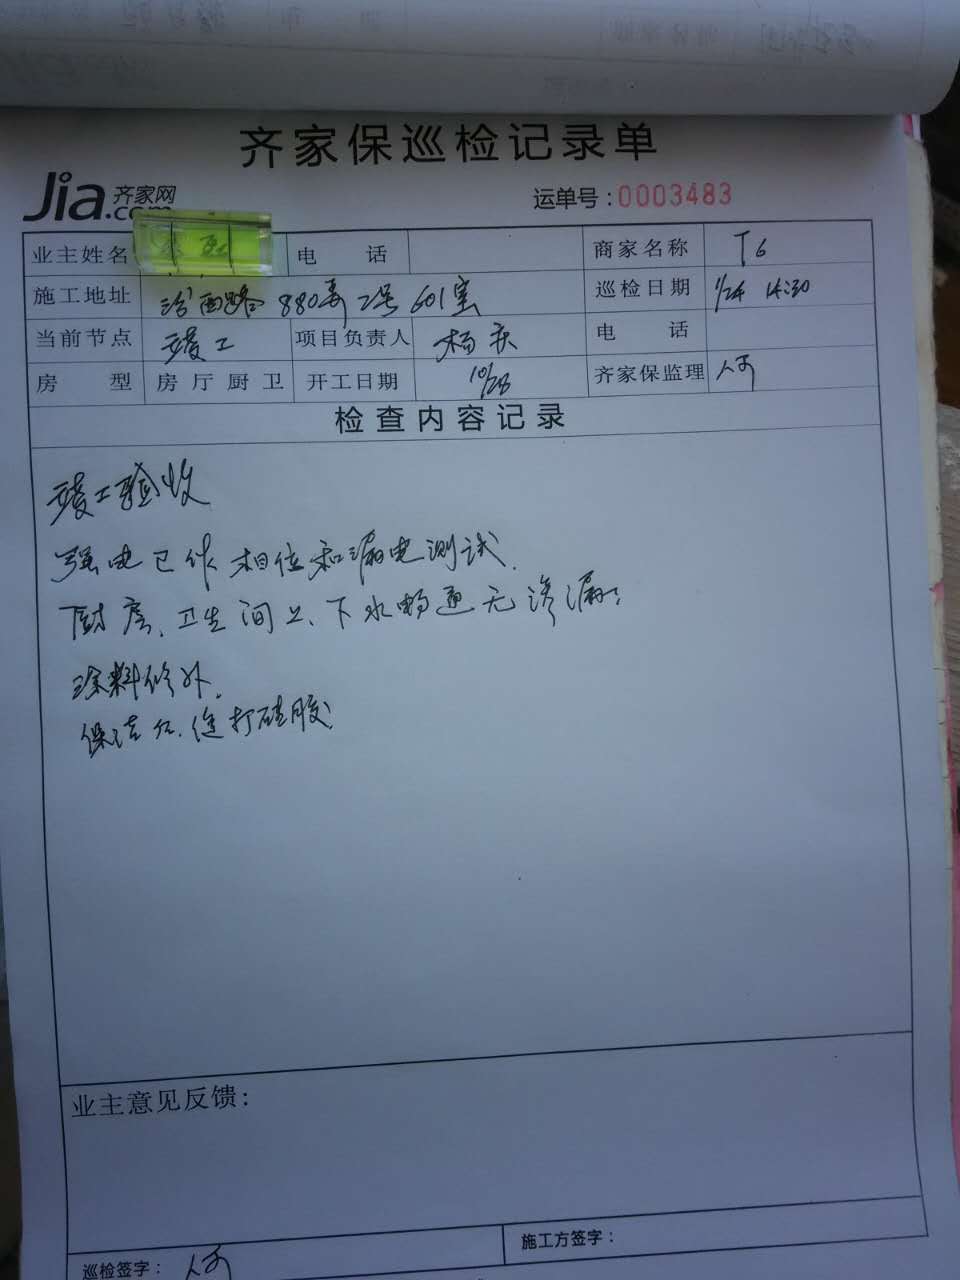 齐家保巡检记录单
Jia.com 齐家网
运单号:0003483
业主姓名 电话 商家名称 T6
施工地址 汾西路880弄2号601室 巡检日期 1/24 14:30
当前节点 竣工 项目负责人 杨庆 电话
房型 房厅厨卫 开工日期 10/28 齐家保监理
检查内容记录
竣工验收
强电已作相位和漏电测试.
厨房、卫生间上、下水畅通无渗漏;
涂料修补.
保洁后.使打硅胶
业主意见反馈:
巡检签字: 施工方签字: